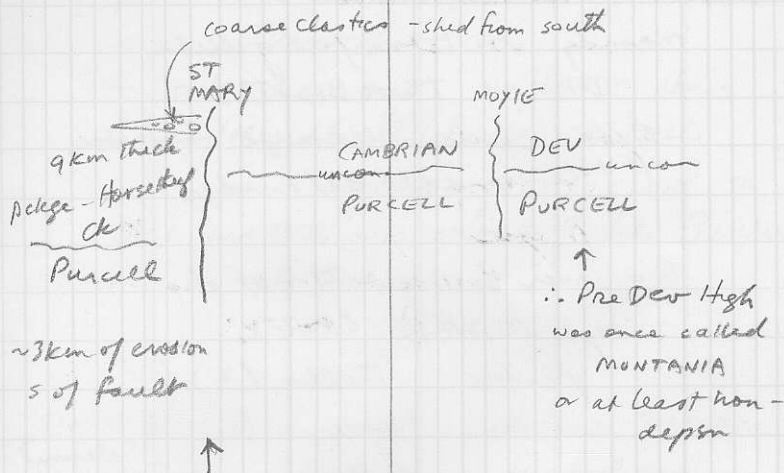 coarse clastics - shed from south
ST
MARY
MOYIE
9km thick
pckge - Horsethief
ck
Purcell
CAMBRIAN
uncon
PURCELL
DEV
uncon
PURCELL
~3km of erosion
S of fault
∴ Pre Dev High
was once called
MONTANIA
or at least non-
depsn